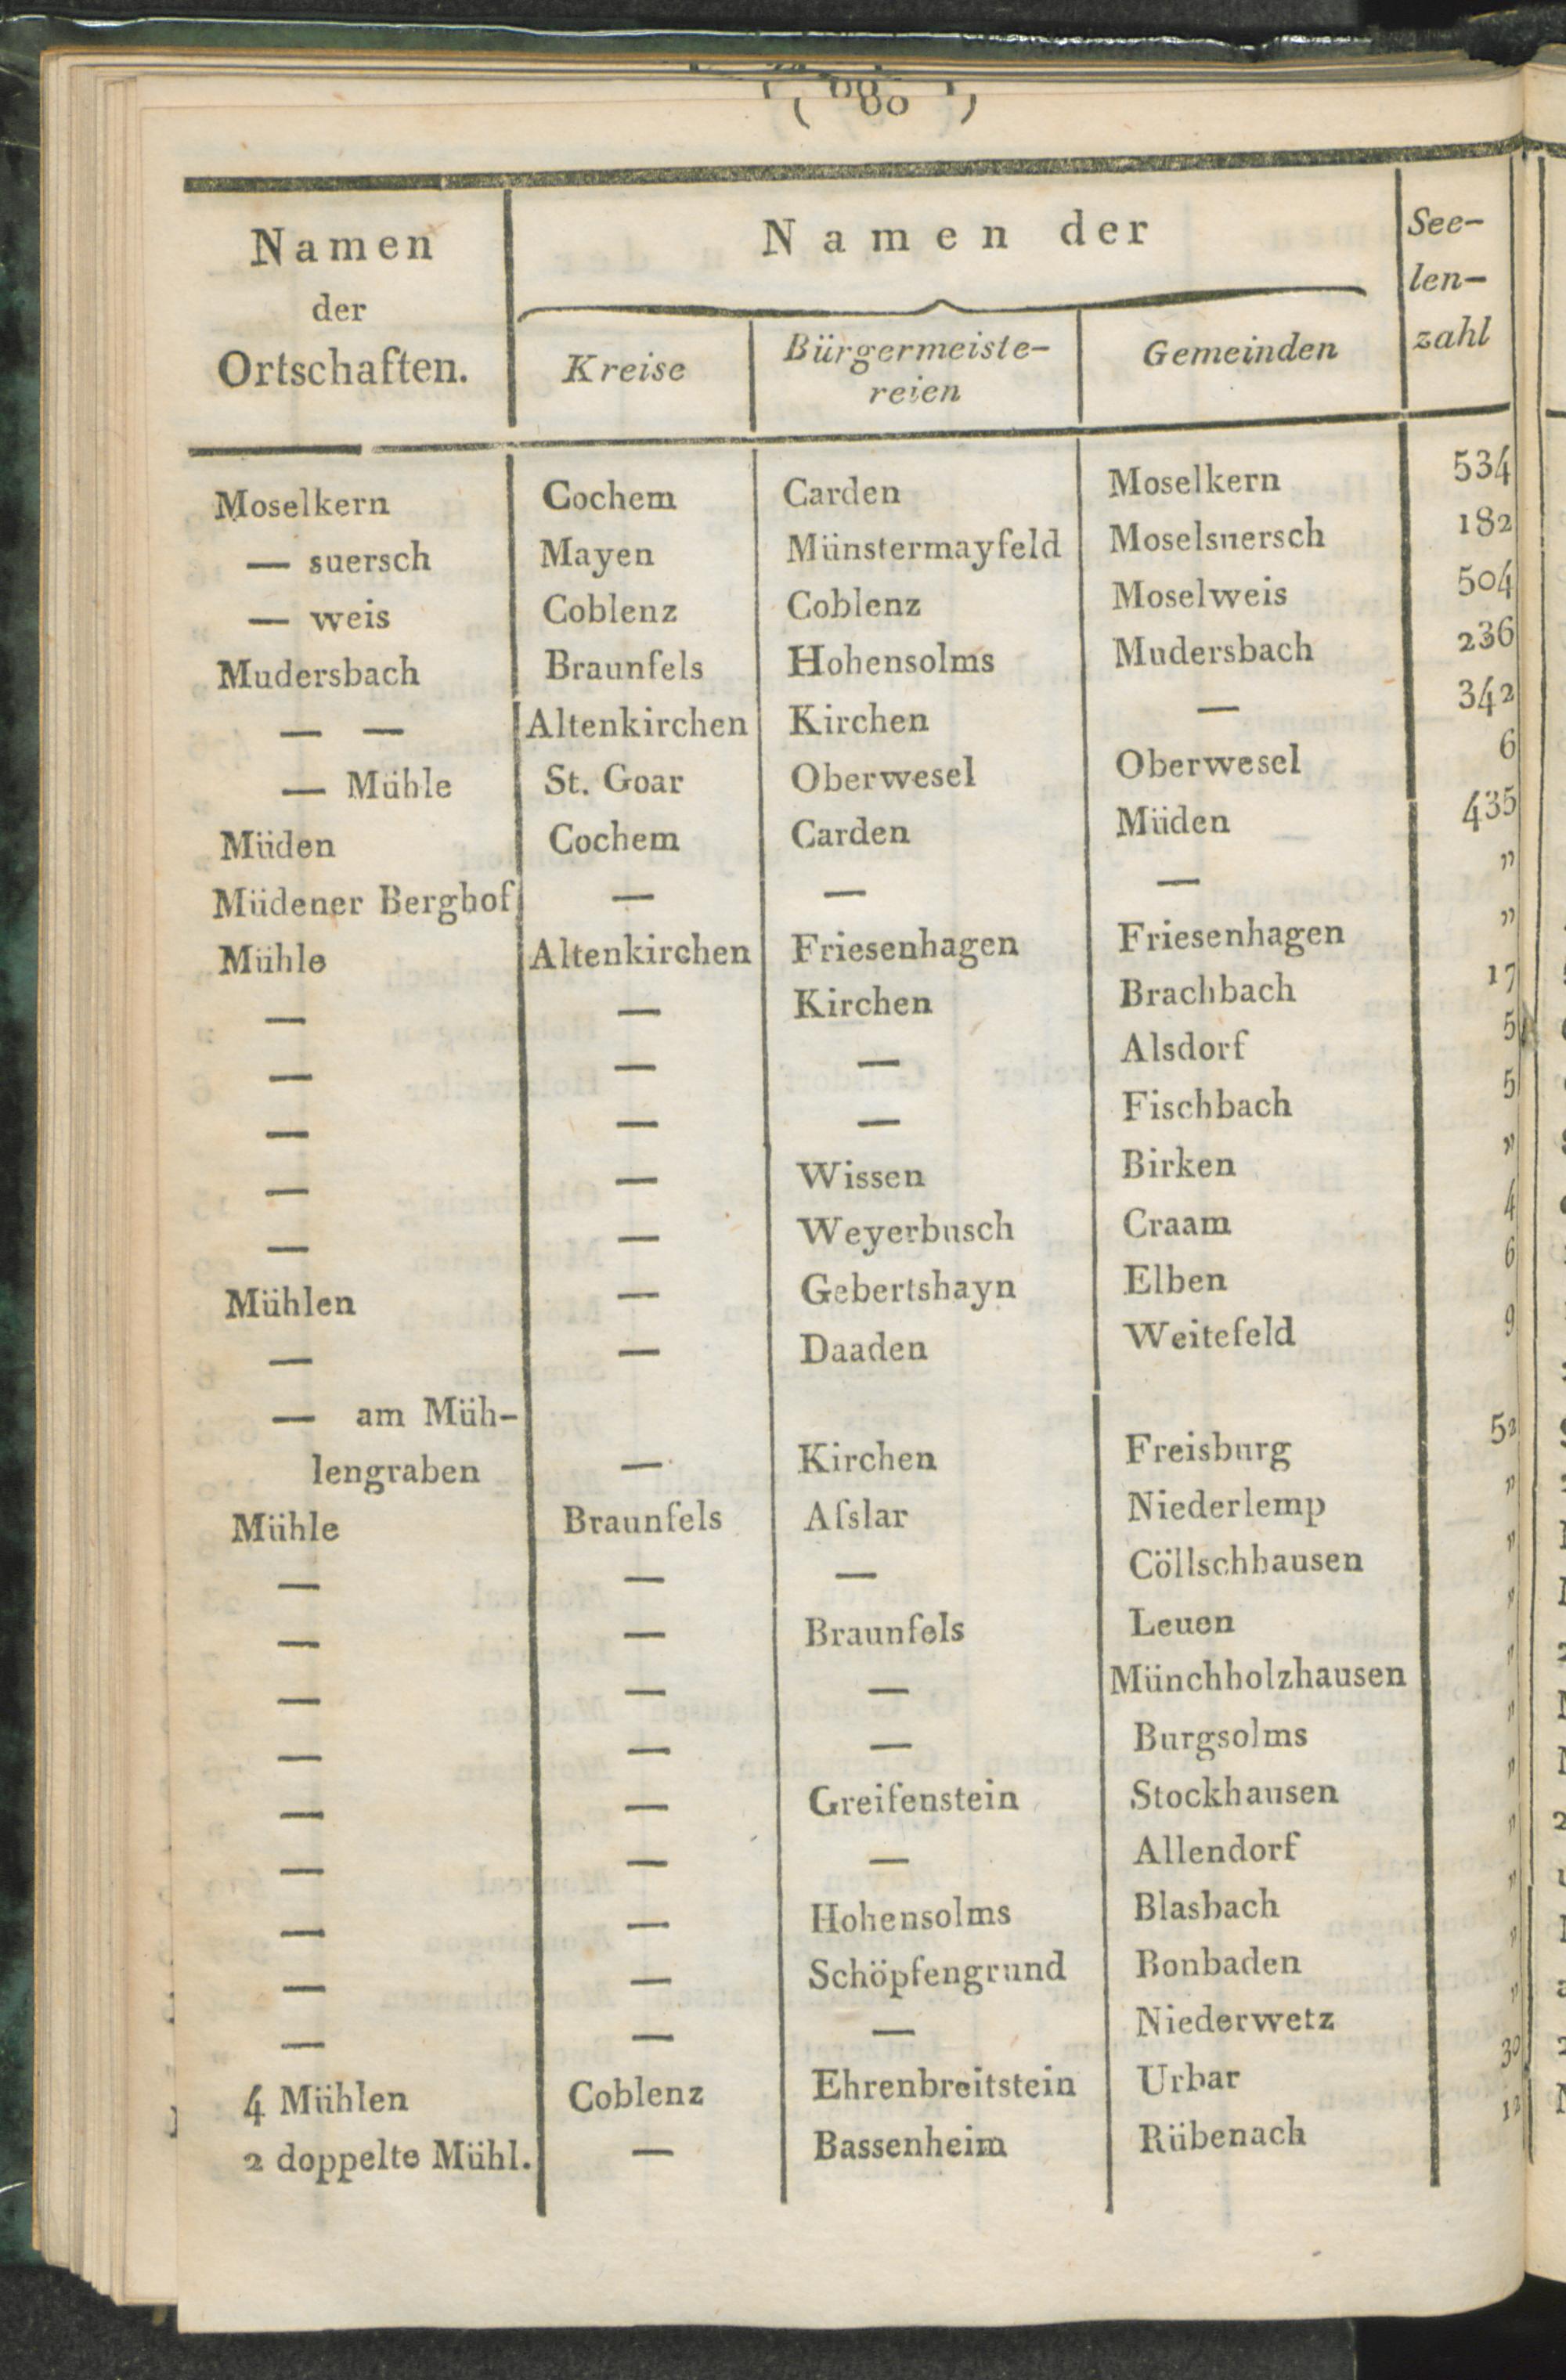 Namen
der
Ortschaften.
Namen der
Kreise
Bürgermeiste-
reien
Gemeinden
See-
len-
zahl
Moselkern Cochem Carden Moselkern 534
— suersch Mayen Münstermayfeld Moselsuersch 182
— weis Coblenz Coblenz Moselweis 504
Mudersbach Braunfels Hohensolms Mudersbach 236
— — Altenkirchen Kirchen — 342
— Mühle St. Goar Oberwesel Oberwesel 6
Müden Cochem Carden Müden 435
Müdener Berghof — — — "
Mühle Altenkirchen Friesenhagen Friesenhagen "
— — Kirchen Brachbach 17
— — — Alsdorf 5
— — — Fischbach 5
— — Wissen Birken "
— — Weyerbusch Craam 4
Mühlen — Gebertshayn Elben 6
— — Daaden Weitefeld 9
— am Müh-
lengraben — Kirchen Freisburg 52
Mühle Braunfels Aſslar Niederlemp "
— — — Cöllschhausen "
— — Braunfels Leuen "
— — — Münchholzhausen "
— — — Burgsolms "
— — Greifenstein Stockhausen "
— — — Allendorf "
— — Hohensolms Blasbach "
— — Schöpfengrund Bonbaden "
— — — Niederwetz "
4 Mühlen Coblenz Ehrenbreitstein Urbar 30
2 doppelte Mühl. — Bassenheim Rübenach 12